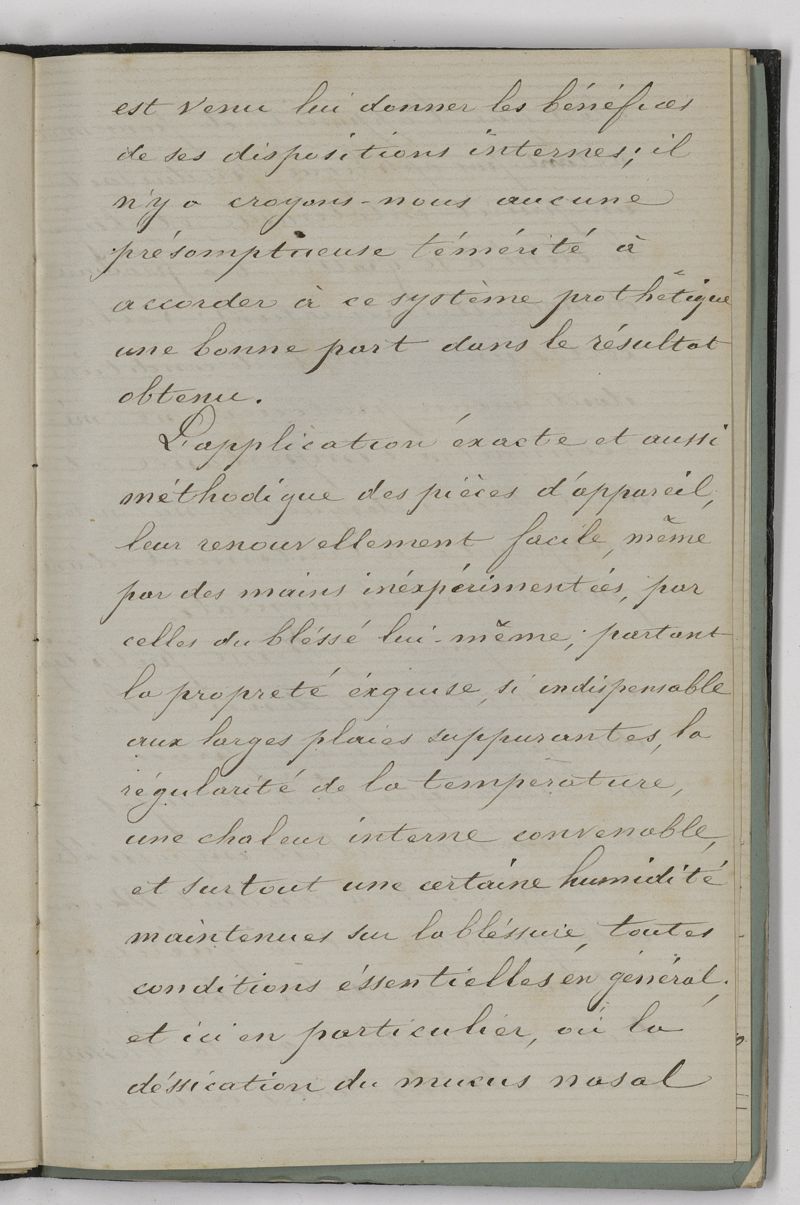 est venu lui donner les bénéfices
de ses dispositions internes; il
n'y a croyons-nous aucune
présomptueuse témérité à
accorder à ce système prothétique
une bonne part dans le résultat
obtenu.
L'application éxacte et aussi
méthodique des pièces d'appareil,
leur renouvellement facile, même
par des mains inéxpérimentées, par
celles du bléssé lui-même; partant
la propreté éxquise, si indispensable
aux larges plaies suppurantes, la
régularité de la température,
une chaleur interne convenable,
et surtout une certaine humidité
maintenues sur la bléssure, toutes
conditions éssentielles én général,
et ici en particulier, où la
déssication du mucus nasal